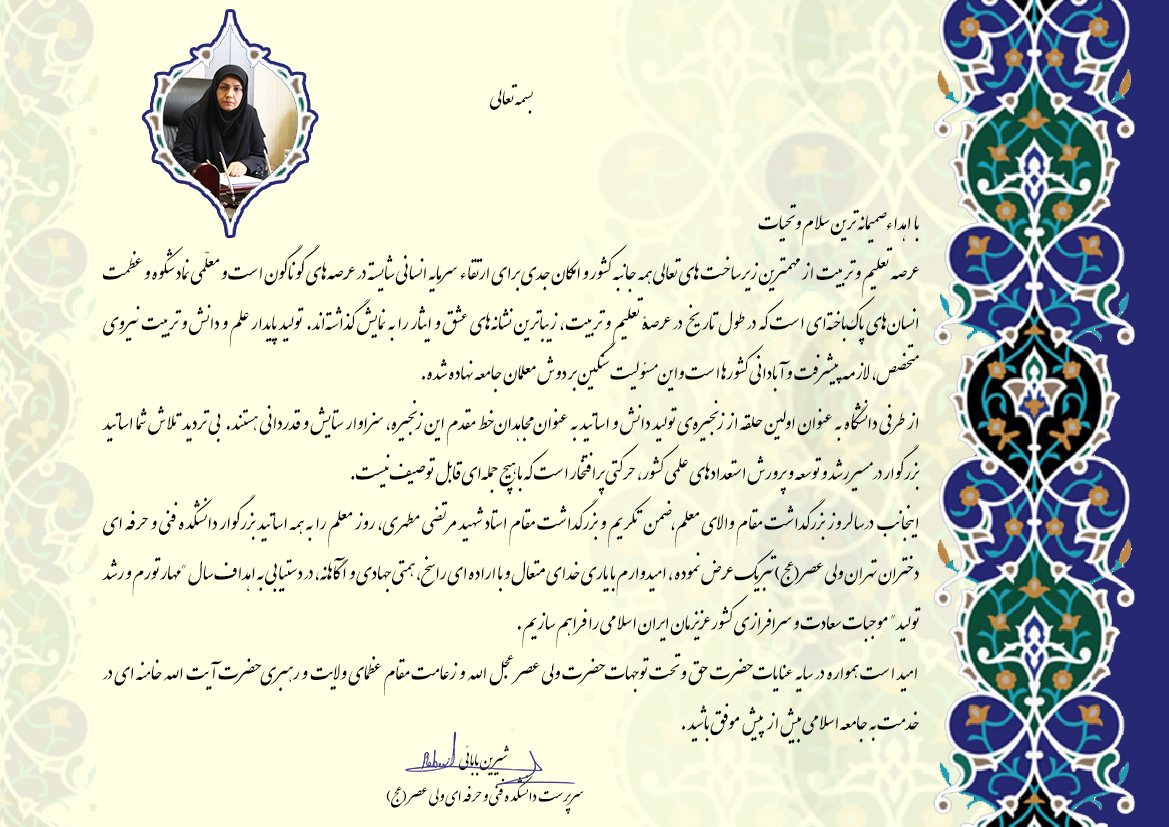 بسمه تعالی
با اهداء صمیمانه ترین سلام و تحیات
عرصه تعلیم و تربیت از مهمترین زیرساخت های تعالی همه جانبه کشور و امکان جدی برای ارتقاء سرمایه انسانی شایسته در عرصه های گوناگون است و معلّمی نماد شکوه و عظمت
انسان های پاک باخته ای است که در طول تاریخ در عرصۀ تعلیم و تربیت، زیباترین نشانه های عشق و ایثار را به نمایش گذاشته اند. تولید پایدار علم و دانش و تربیت نیروی
متخصص، لازمه پیشرفت و آبادانی کشورها است و این مسؤلیت سنگین بر دوش معلمان جامعه نهاده شده.
از طرفی دانشگاه به عنوان اولین حلقه از زنجیره ی تولید دانش و اساتید به عنوان مجاهدان خط مقدم این زنجیره، سزاوار ستایش و قدردانی هستند. بی تردید تلاش شما اساتید
بزرگوار در مسیر رشد و توسعه و پرورش استعدادهای علمی کشور، حرکتی پر افتخار است که با هیچ جمله ای قابل توصیف نیست.
اینجانب در سالروز بزرگداشت مقام والای معلم، ضمن تکریم و بزرگداشت مقام استاد شهید مرتضی مطهری، روز معلم را به همه اساتید بزرگوار دانشکده فنی و حرفه ای
دختران تهران ولی عصر(عج) تبریک عرض نموده ، امیدوارم با یاری خدای متعال و با اراده ای راسخ، همتی جهادی و آگاهانه، در دستیابی به اهداف سال "مهار تورم و رشد
تولید" موجبات سعادت و سرافرازی کشور عزیزمان ایران اسلامی را فراهم سازیم .
امید است همواره در سایه عنایات حضرت حق و تحت توجهات حضرت ولی عصر عجل الله و زعامت مقام عظمای ولایت و رهبری حضرت آیت الله خامنه ای در
خدمت به جامعه اسلامی بیش از پیش موفق باشید .
شیرین بابائی
سرپرست دانشکده فنی و حرفه ای ولی عصر(عج)